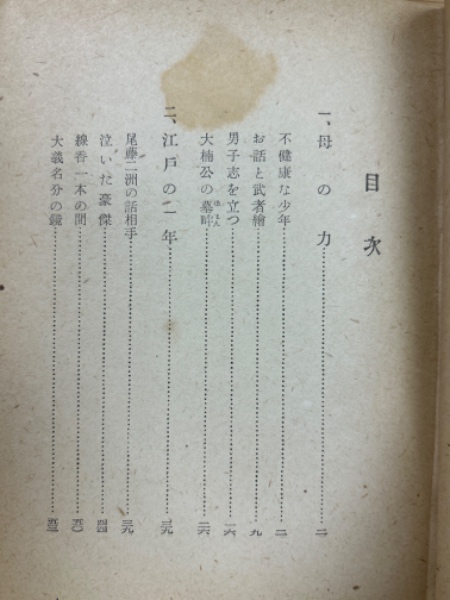 目次
一、母の力……二
不健康な少年……二
お話と武者繪……九
男子志を立つ……一六
大楠公の墓畔……二六
二、江戸の一年……三九
尾藤二洲の話相手……三九
泣いた豪傑……四四
線香一本の間……五〇
大義名分の鏡……五三